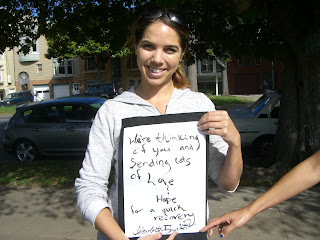 We're thinking
of you and
Sending lots
of Love
&
Hope
for a quick
recovery